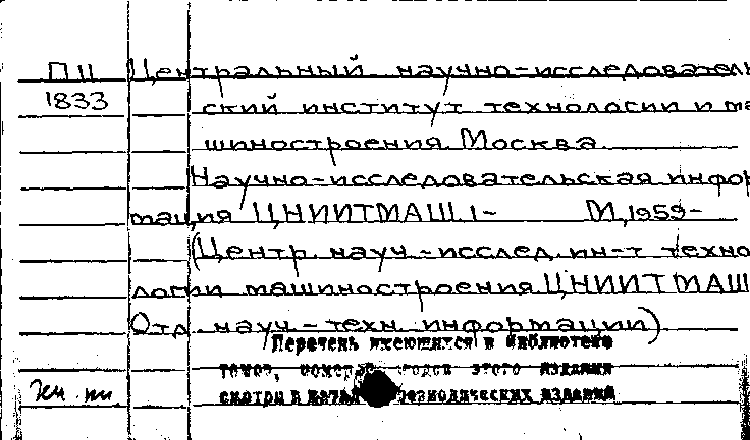 П11 Центральный научно-исследователь
1833 ский институт технологии и ма
шиностроения. Москва.
Научно-исследовательская инфор
мация ЦНИИТМАШ. 1- М., 1959-
(Центр. науч.-исслед. ин-т техно
логии машиностроения. ЦНИИТМАШ
Отд. науч.-техн. информации)
Перечень имеющихся в библиотеке
томов, номеров, годов этого издания
смотри в периодических изданий